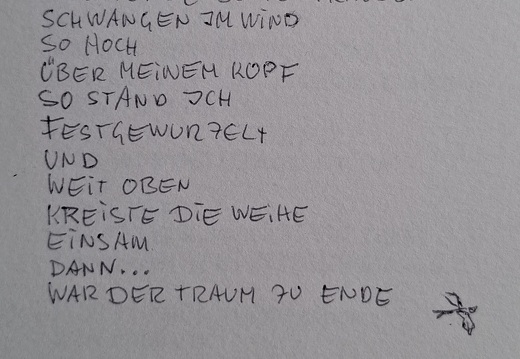 SCHWANGEN IM WIND
SO HOCH
ÜBER MEINEM KOPF
SO STAND ICH
FESTGEWURZELT
UND
WEIT OBEN
KREISTE DIE WEIHE
EINSAM
DANN...
WAR DER TRAUM ZU ENDE